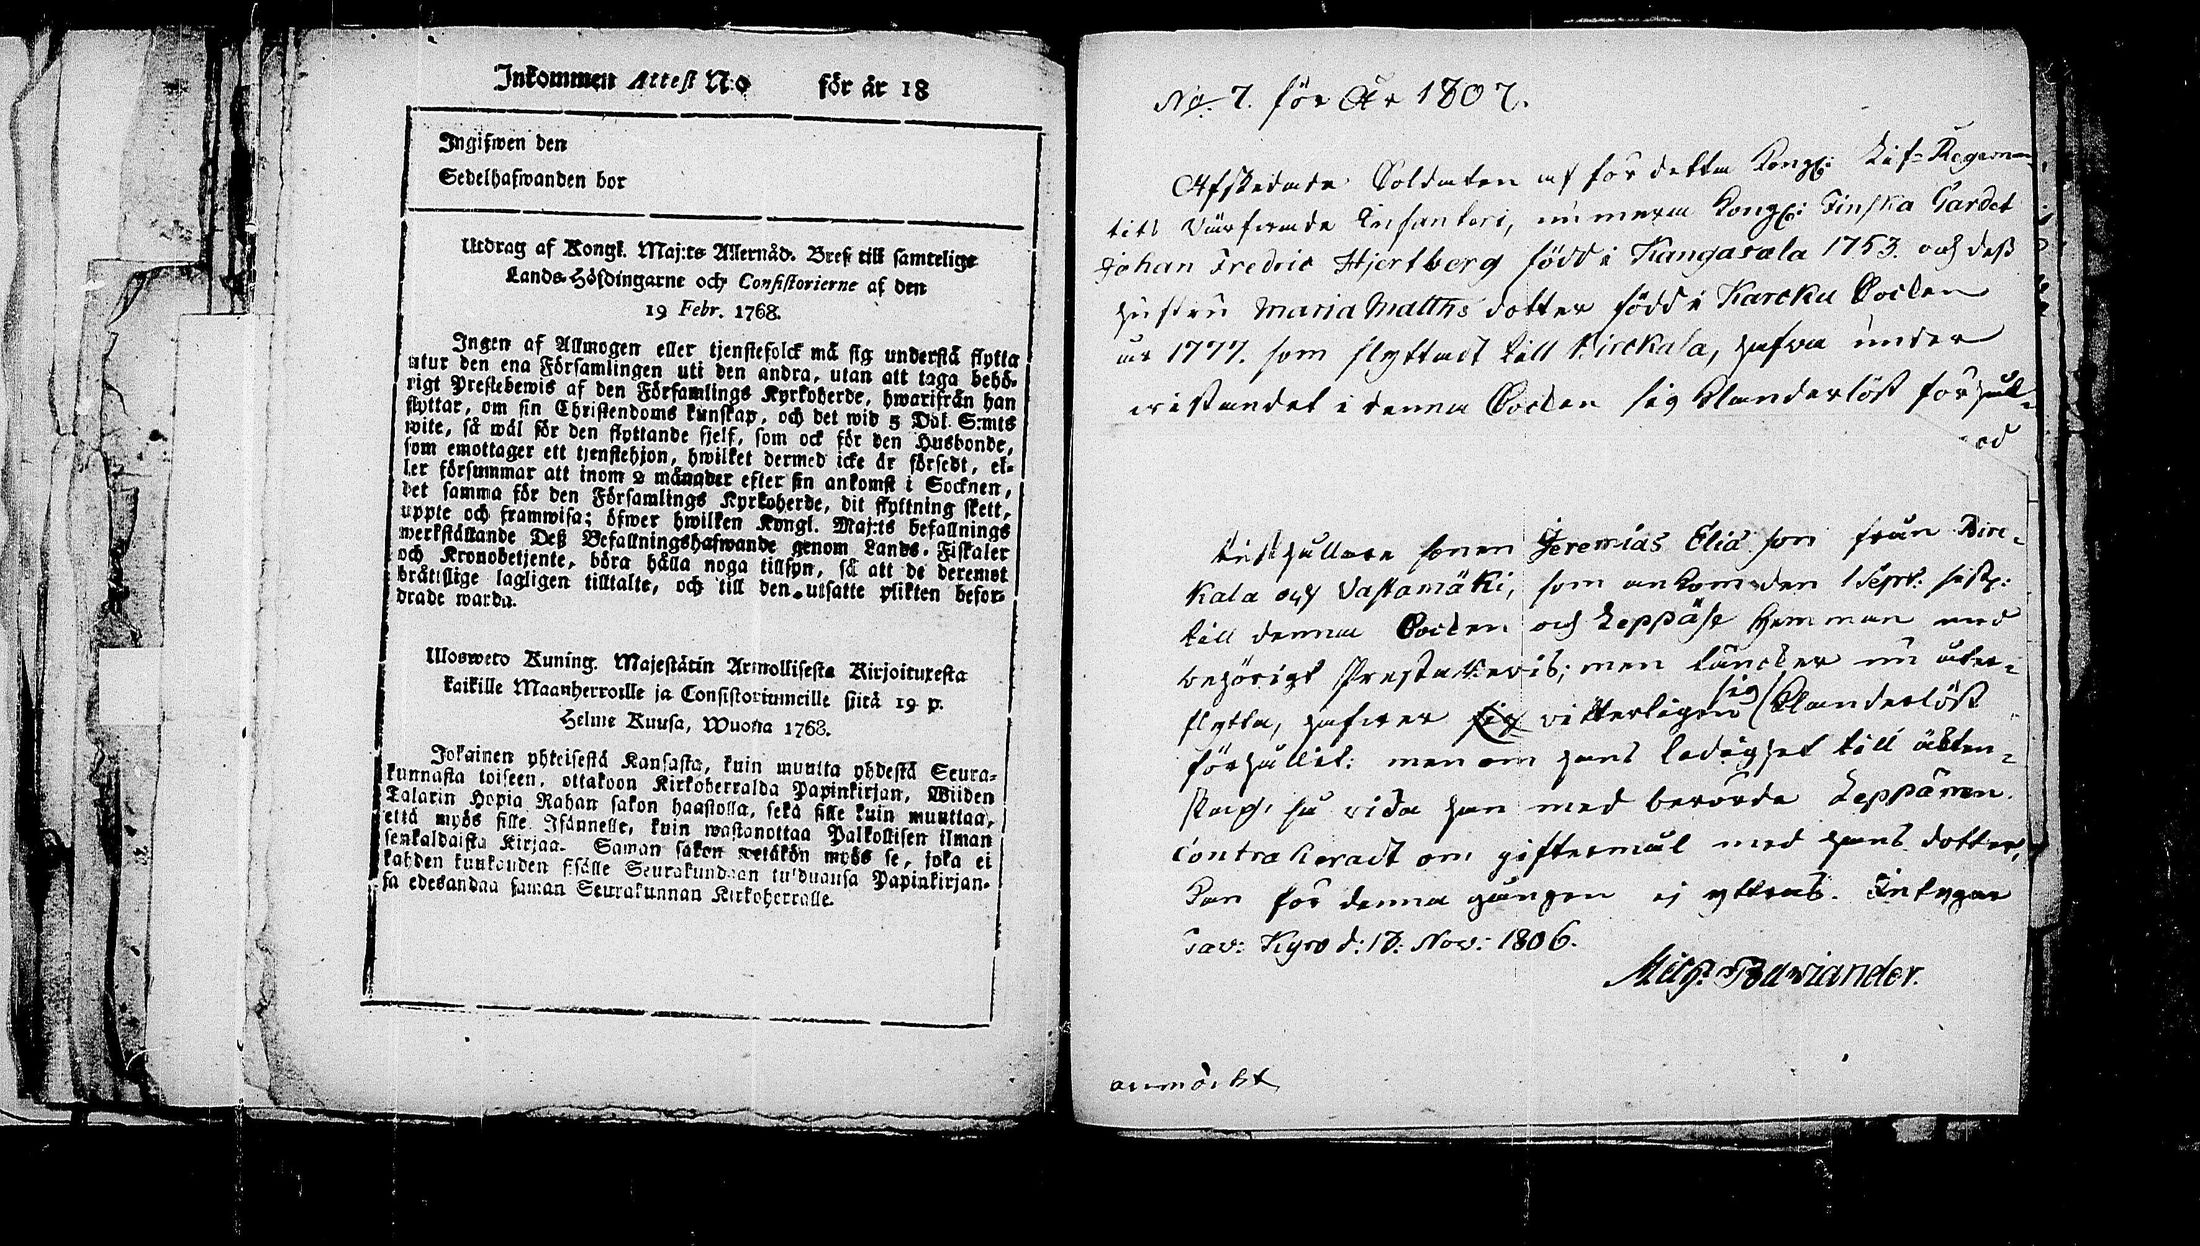 Inkommen Attest N:o för år 18
Ingifwen den
Sedelhafwanden bor
Utdrag af Kongl. Maj:ts Allernåd. Bref till samtelige
Lands-Höfdingarne och Consistorierne af den
19 Febr. 1768.
Ingen af Allmogen eller tjenstefolck må sig understå flytta
utur den ena Församlingen uti den andra, utan att taga behö-
rigt Prestebewis af den Församlings Kyrkoherde, hwarifrån han
flyttar, om sin Christendoms kunskap, och det wid 5 Dal. S:mts
wite, så wäl för den flyttande sjelf, som ock för den Husbonde,
som emottager ett tjenstehjon, hwilket dermed icke är försedt, el-
ler försummar att inom 2 månader efter sin ankomst i Socknen,
det samma för den Församlings Kyrkoherde, dit flyttning skett,
uppte och framwisa; öfwer hwilken Kongl. Maj:ts befallnings
werkställande Deß Befallningshafwande genom Lands-Fiskaler
och Kronobetjente, böra hålla noga tillsyn, så att de deremot
bråttslige lagligen tilltalte, och till den utsatte plikten befor-
drade warda.
Ulosweto Kuning. Majestätin Armollisesta Kirjoituxesta
kaikille Maanherroille ja Consistoriumeille siitä 19 p.
Helme Kuusa, Wuonna 1768.
Jokainen yhteisestä Kansasta, kuin muutta yhdestä Seura-
kunnasta toiseen, ottakoon Kirkoherralda Papinkirjan, Wiiden
Talarin Hopia Rahan sakon haastolla, sekä sille kuin muuttaa,
että myös sille Isännelle, kuin wastanottaa Palkollisen ilman
senkaldaista Kirjaa. Saman sakon wetäkön myös se, joka ei
kahden kuukauden sisälle Seurakundaan tulduansa Papinkirjan-
sa edesandaa saman Seurakunnan Kirkoherralle.
No. 7. för År 1807.
Afskedade Soldaten af för detta Kongl: Lif-Regemen
tets Värfvade Infanteri, numera Kongl: Finska Gardet
Johan Fredric Hjertberg född i Kangasala 1753. och deß
hustru Maria Matths dotter född i Karcku Socken
år 1777. som flyttadt till Birckala, hafva under
vistandet i denna Socken sig Klanderlöst förhål-
Inhyses sonen Jeremias Elia son från Birc-
kala och Vastamäki, som ankom den 1 Sept: sistl:
till denna Socken och Leppäse Hemman med
behörigt Prestabevis; men täncker nu åter-
flytta, hafver sig vitterligen sig Klanderlöst
förhållit: men om hans ledighet till äkten-
skap, så vida han med berörde Leppänen
Contraheradt om giftermål med hans dotter,
Kan för denna gången ej yttras. Intygar
Tav: Kyro d: 18: Nov: 1806.